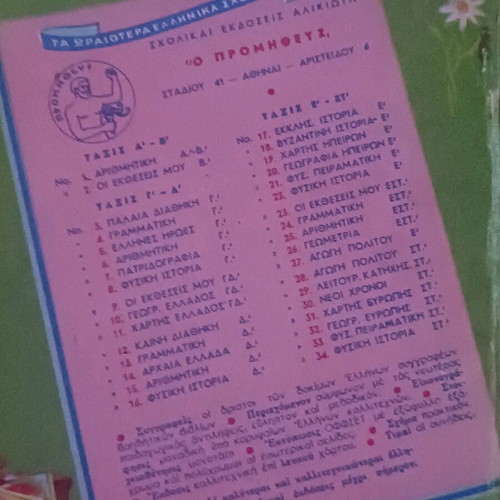 ΤΑ ΩΡΑΙΟΤΕΡΑ ΕΛΛΗΝΙΚΑ
ΣΧΟΛΙΚΑΙ ΕΚΔΟΣΕΙΣ ΑΛΙΚΙΩΤΗ
"Ο ΠΡΟΜΗΘΕΥΣ"
ΣΤΑΔΙΟΥ 41 — ΑΘΗΝΑΙ — ΑΡΙΣΤΕΙΔΟΥ 6
ΠΡΟΜΗΘΕΥΣ
ΤΑΞΙΣ Α' - Β'
No. 1. ΑΡΙΘΜΗΤΙΚΗ Α.'-Β.'
» 2. ΟΙ ΕΚΘΕΣΕΙΣ ΜΟΥ Β.'
ΤΑΞΙΣ Γ' - Δ'
No. 3. ΠΑΛΑΙΑ ΔΙΑΘΗΚΗ Γ.'
» 4. ΓΡΑΜΜΑΤΙΚΗ Γ.'
» 5. ΕΛΛΗΝΕΣ ΗΡΩΕΣ Γ.'
» 6. ΑΡΙΘΜΗΤΙΚΗ Γ.'
» 7. ΠΑΤΡΙΔΟΓΡΑΦΙΑ Γ.'
» 8. ΦΥΣΙΚΗ ΙΣΤΟΡΙΑ Γ.'
» 9. ΟΙ ΕΚΘΕΣΕΙΣ ΜΟΥ Γ.Δ.'
» 10. ΓΕΩΓΡ. ΕΛΛΑΔΟΣ Γ.Δ.'
» 11. ΧΑΡΤΗΣ ΕΛΛΑΔΟΣ Γ.Δ.'
» 12. ΚΑΙΝΗ ΔΙΑΘΗΚΗ Δ.'
» 13. ΓΡΑΜΜΑΤΙΚΗ Δ.'
» 14. ΑΡΧΑΙΑ ΕΛΛΑΔΑ Δ.'
» 15. ΑΡΙΘΜΗΤΙΚΗ Δ.'
» 16. ΦΥΣΙΚΗ ΙΣΤΟΡΙΑ Δ.'
ΤΑΞΙΣ Ε' - ΣΤ'
No. 17. ΕΚΚΛΗΣ. ΙΣΤΟΡΙΑ Ε'
» 18. ΒΥΖΑΝΤΙΝΗ ΙΣΤΟΡΙΑ Ε'
» 19. ΧΑΡΤΗΣ ΗΠΕΙΡΩΝ Ε'
» 20. ΓΕΩΓΡΑΦΙΑ ΗΠΕΙΡΩΝ Ε'
» 21. ΦΥΣ. ΠΕΙΡΑΜΑΤΙΚΗ Ε'
» 22. ΦΥΣΙΚΗ ΙΣΤΟΡΙΑ Ε'
» 23. ΟΙ ΕΚΘΕΣΕΙΣ ΜΟΥ ΕΣΤ.'
» 24. ΓΡΑΜΜΑΤΙΚΗ ΕΣΤ.'
» 25. ΑΡΙΘΜΗΤΙΚΗ ΕΣΤ.'
» 26. ΓΕΩΜΕΤΡΙΑ ΕΣΤ.'
» 27. ΑΓΩΓΗ ΠΟΛΙΤΟΥ Ε'
» 28. ΑΓΩΓΗ ΠΟΛΙΤΟΥ ΣΤ.'
» 29. ΛΕΙΤΟΥΡ. ΚΑΤΗΧΗΣ. ΣΤ.'
» 30. ΝΕΟΙ ΧΡΟΝΟΙ ΣΤ.'
» 31. ΧΑΡΤΗΣ ΕΥΡΩΠΗΣ ΣΤ.'
» 32. ΓΕΩΓΡ. ΕΥΡΩΠΗΣ ΣΤ.'
» 33. ΦΥΣ. ΠΕΙΡΑΜΑΤΙΚΗ ΣΤ.'
» 34. ΦΥΣΙΚΗ ΙΣΤΟΡΙΑ ΣΤ.'
● Συγγραφεῖς οἱ ἄριστοι τῶν δοκίμων Ἑλλήνων συγγραφέων
βοηθητικῶν βιβλίων. ● Περιεχόμενον σύμφωνον μὲ τὰς νεωτέρας
παιδαγωγικὰς ἀντιλήψεις, εὔληπτον καὶ μεθοδικόν. ● Εἰκονογρά-
φησις μοναδικὴ ὑπὸ κορυφαίων Ἑλλήνων καλλιτεχνῶν. ●
μοναδικαὶ ● Ἐκτύπωσις ΟΦΦΣΕΤ μὲ ἐξώφυλλο ἑξά-
χρωμο καὶ πολύχρωμοι αἱ ἐσωτερικαὶ σελίδες. ● Σχῆμα πρακτικόν.
Ἔκδοσις καλλιτεχνικὴ ἐπὶ λευκοῦ χάρτου. ● Τιμαὶ αἱ συνήθεις.
καλύτεραι καὶ καλλιτεχνικώτεραι ἑλλη-
ἐκδόσεις μέχρι σήμερον.